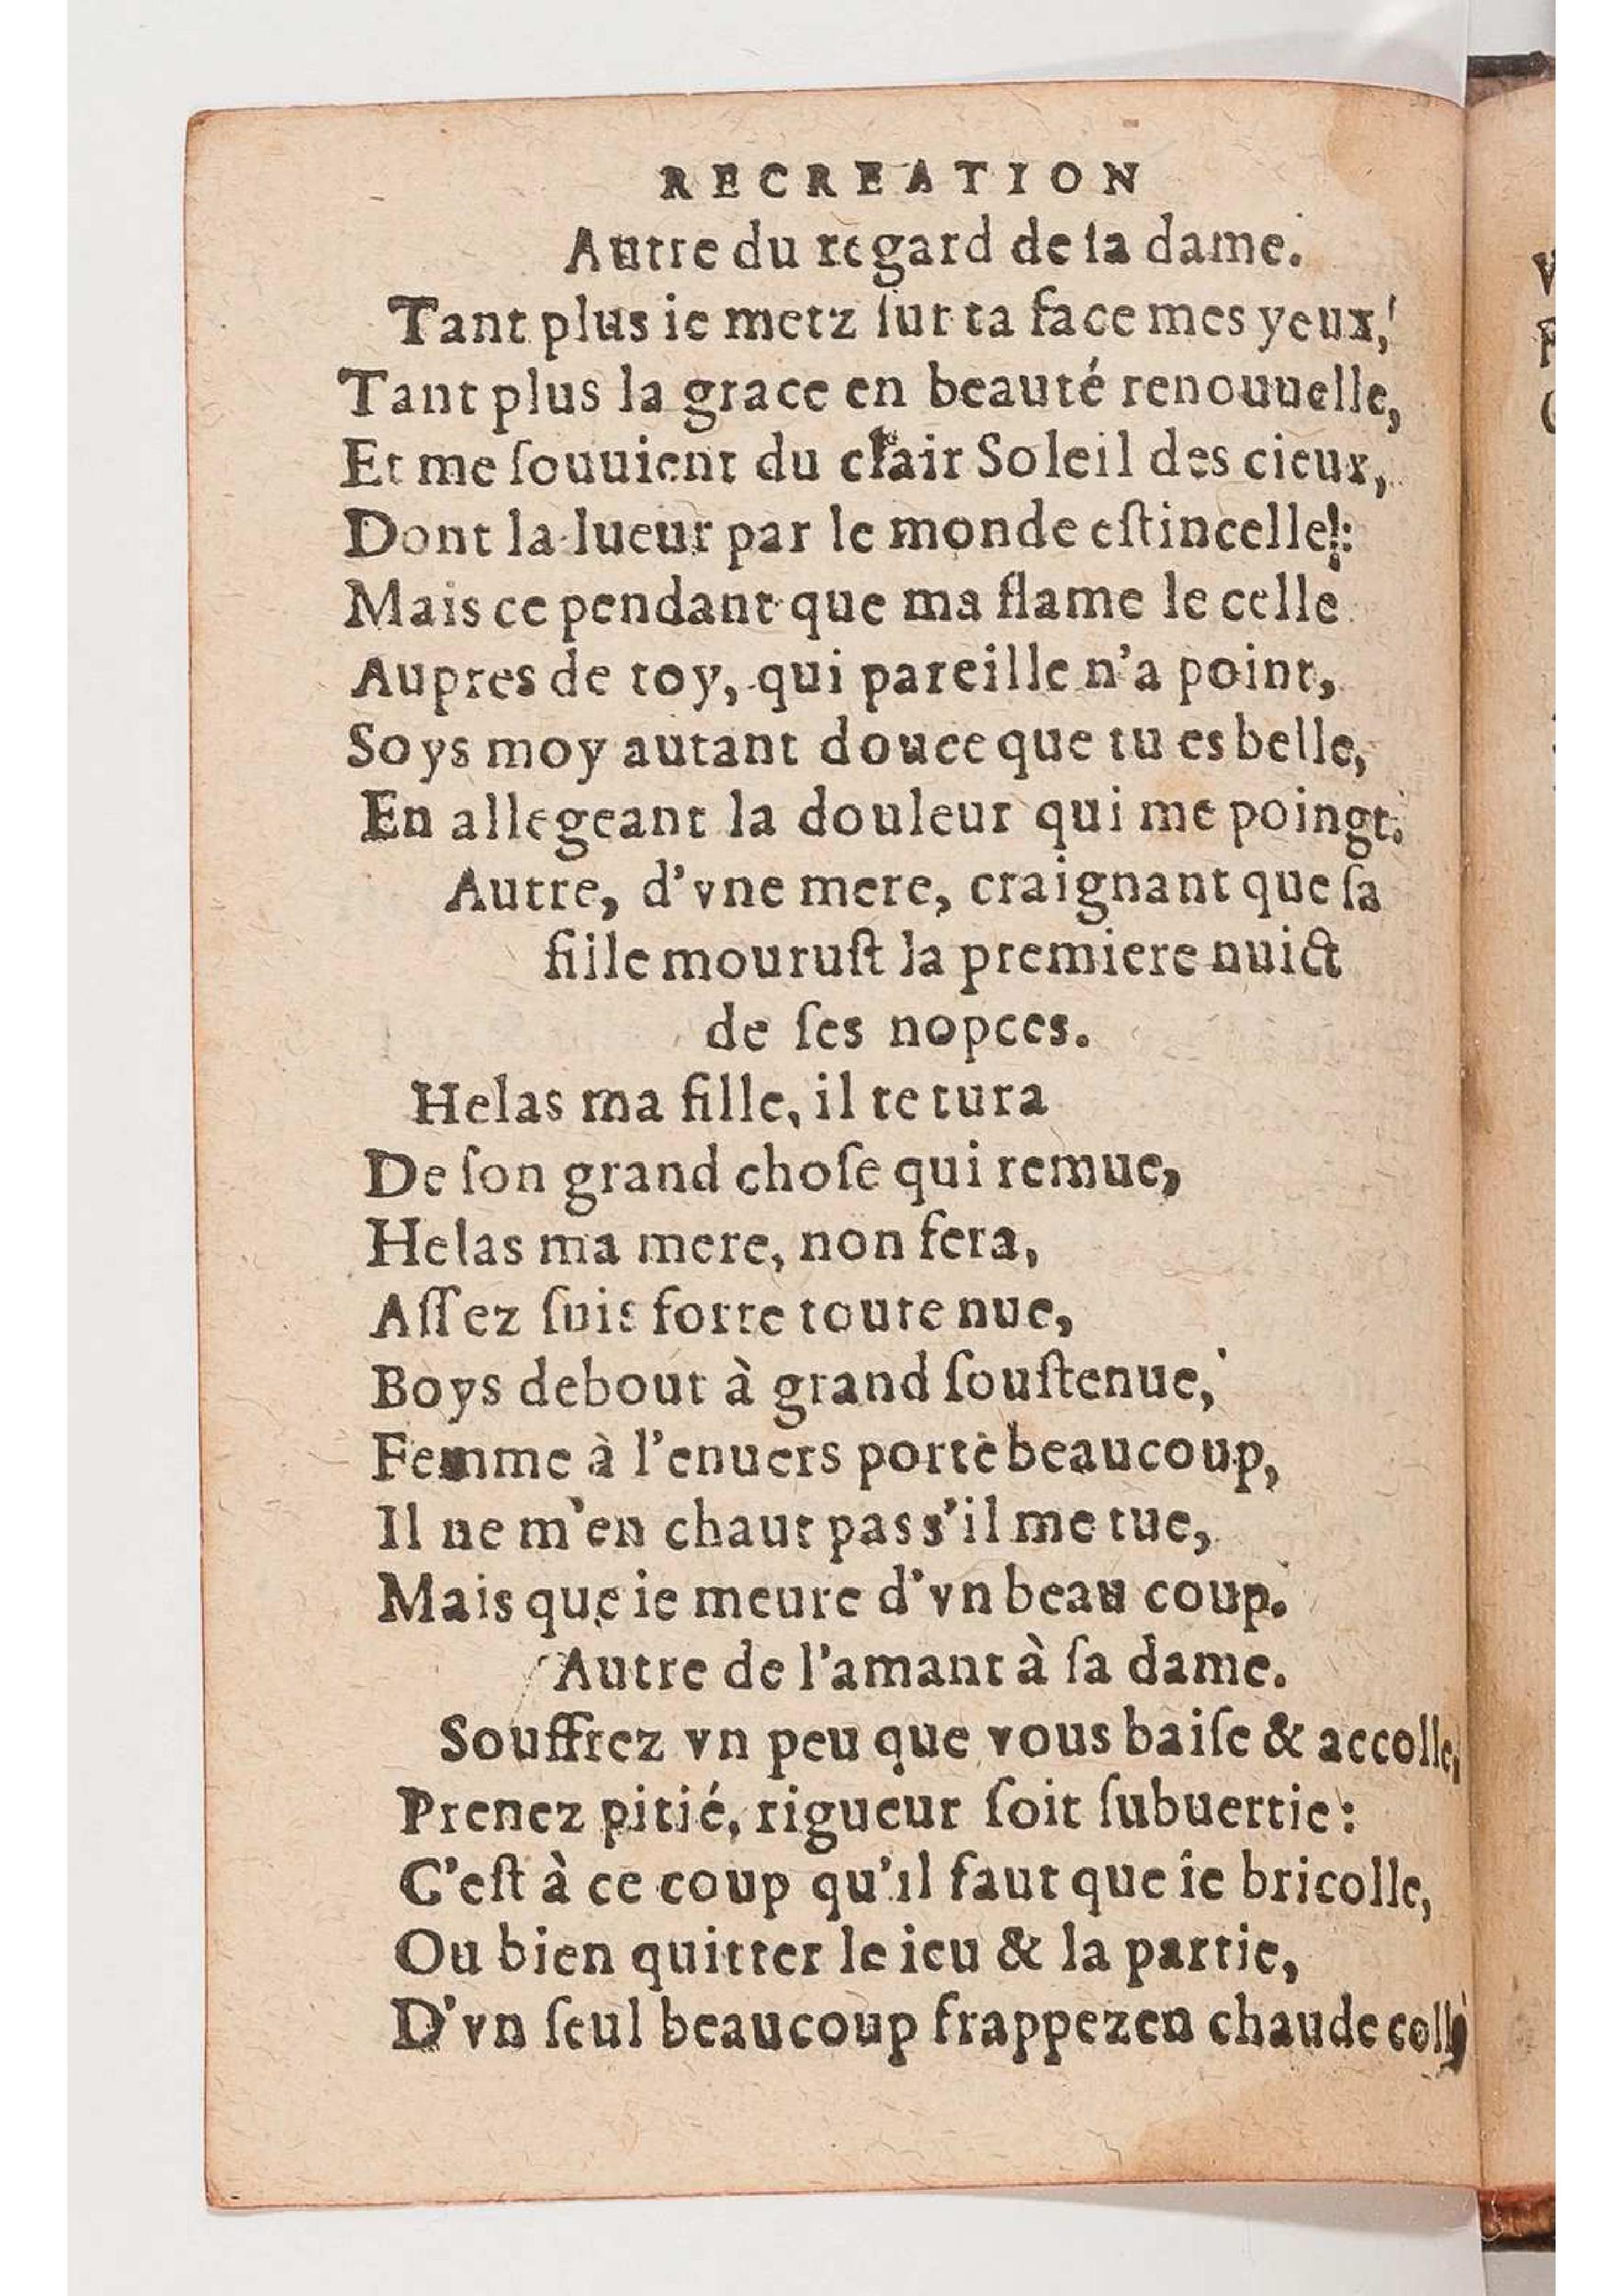 RECREATION
Autre du regard de la dame.
Tant plus ie metz sur ta face mes yeux,
Tant plus la grace en beauté renouuelle,
Et me ſouuient du clair Soleil des cieux,
Dont la lueur par le monde eſtincelle:
Mais ce pendant que ma flame le celle
Aupres de toy, qui pareille n'a point,
Soys moy autant douce que tu es belle,
En allegeant la douleur qui me poingt.
Autre, d'vne mere, craignant que ſa
fille mouruſt la premiere nuict
de ſes nopces.
Helas ma fille, il te tura
De ſon grand choſe qui remue,
Helas ma mere, non fera,
Aſſez ſuis forte toute nue,
Boys debout à grand ſouſtenue,
Femme à l'enuers porte beaucoup,
Il ne m'en chaut pas s'il me tue,
Mais que ie meure d'vn beau coup.
Autre de l'amant à ſa dame.
Souffrez vn peu que vous baiſe & accolle,
Prenez pitié, rigueur ſoit ſubuertie:
C'eſt à ce coup qu'il faut que ie bricolle,
Ou bien quitter le ieu & la partie,
D'vn ſeul beau coup frappez en chaude